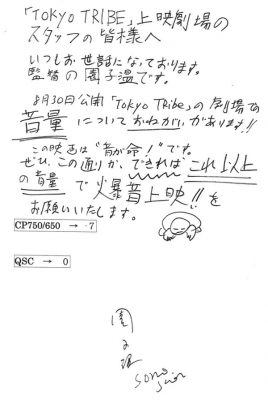 「TOKYO TRIBE」上映劇場の
スタッフの皆様へ
いつもお世話になっております。
監督の園子温です。
8月30日公開「Tokyo Tribe」の劇場での
音量についておねがいがあります!!
この映画は“音が命!”です。
ぜひ、この通りか、できればこれ以上
の音量で爆音上映!!を
お願いいたします。
CP750/650 → 7
QSC → 0
園子温
sono
sion